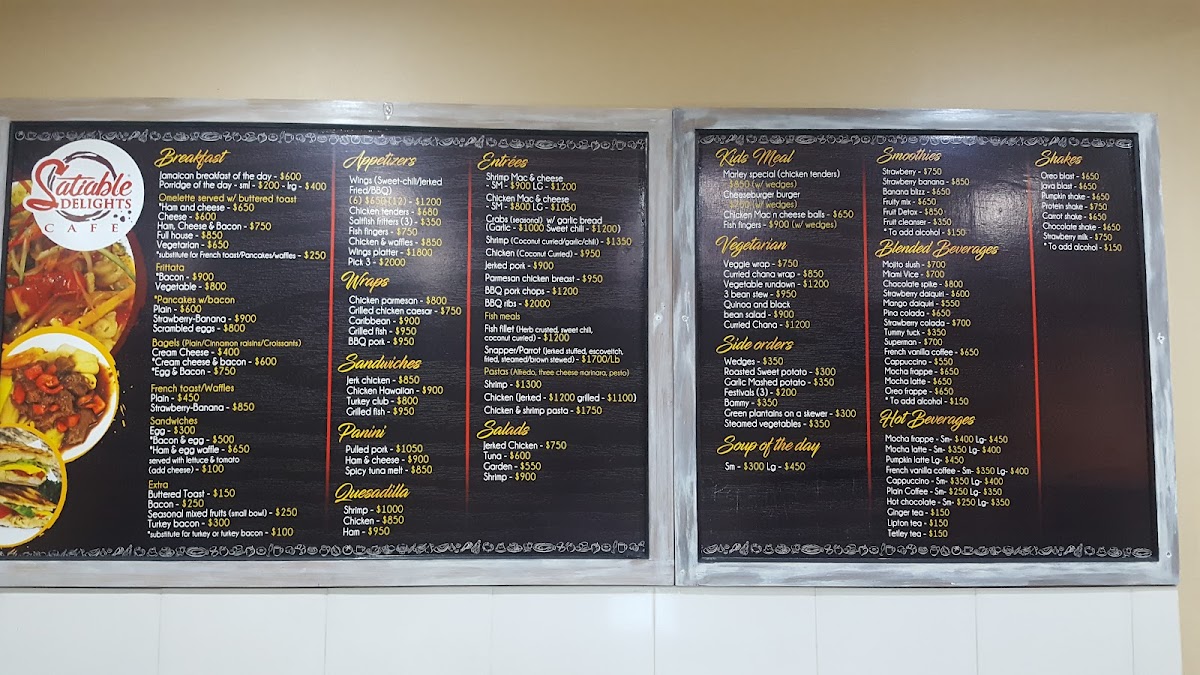 Satiable
DELIGHTS
CAFE
Breakfast
Jamaican breakfast of the day - $600
Porridge of the day - sml - $200 - lrg - $400
Omelette served w/ buttered toast
*Ham and cheese - $650
Cheese - $600
Ham, Cheese & Bacon - $750
Full house - $850
Vegetarian - $650
*substitute for French toast/Pancakes/waffles - $250
Frittata
*Bacon - $900
Vegetable - $800
*Pancakes w/bacon
Plain - $600
Strawberry-Banana - $900
Scrambled eggs - $800
Bagels (Plain/Cinnamon raisins/Croissants)
Cream Cheese - $400
*Cream cheese & bacon - $600
*Egg & Bacon - $750
French toast/Waffles
Plain - $450
Strawberry-Banana - $850
Sandwiches
Egg - $300
*Bacon & egg - $500
*Ham & egg waffle - $650
served with lettuce & tomato
(add cheese) - $100
Extra
Buttered Toast - $150
Bacon - $250
Seasonal mixed fruits (small bowl) - $250
Turkey bacon - $300
*substitute for turkey or turkey bacon - $100
Appetizers
Wings (Sweet-chili/Jerked
Fried/BBQ)
(6) $650 (12) - $1200
Chicken tenders - $680
Saltfish fritters (3) - $350
Fish fingers - $750
Chicken & waffles - $850
Wings platter - $1800
Pick 3 - $2000
Wraps
Chicken parmesan - $800
Grilled chicken caesar - $750
Caribbean - $900
Grilled fish - $950
BBQ pork - $950
Sandwiches
Jerk chicken - $850
Chicken Hawaiian - $900
Turkey club - $800
Grilled fish - $950
Panini
Pulled pork - $1050
Ham & cheese - $900
Spicy tuna melt - $850
Quesadilla
Shrimp - $1000
Chicken - $850
Ham - $950
Entrées
Shrimp Mac & cheese
- SM - $900 LG - $1200
Chicken Mac & cheese
- SM - $800 LG - $1050
Crabs (seasonal) w/ garlic bread
(Garlic - $1000 Sweet chili - $1200)
Shrimp (Coconut curried/garlic/chili) - $1350
Chicken (Coconut Curried) - $950
Jerked pork - $900
Parmesan chicken breast - $950
BBQ pork chops - $1200
BBQ ribs - $2000
Fish meals
Fish fillet (Herb crusted, sweet chili,
coconut curried) - $1200
Snapper/Parrot (Jerked stuffed, escoveitch,
fried, steamed/brown stewed) - $1700/Lb
Pastas (Alfredo, three cheese marinara, pesto)
Shrimp - $1300
Chicken (Jerked - $1200 grilled - $1100)
Chicken & shrimp pasta - $1750
Salads
Jerked Chicken - $750
Tuna - $600
Garden - $550
Shrimp - $900
Kids Meal
Marley special (chicken tenders)
- $850 (w/ wedges)
Cheeseburger burger
- $700 (w/ wedges)
Chicken Mac n cheese balls - $650
Fish fingers - $900 (w/ wedges)
Vegetarian
Veggie wrap - $750
Curried chana wrap - $850
Vegetable rundown - $1200
3 bean stew - $950
Quinoa and black
bean salad - $900
Curried Chana - $1200
Side orders
Wedges - $350
Roasted Sweet potato - $300
Garlic Mashed potato - $350
Festivals (3) - $200
Bammy - $350
Green plantains on a skewer - $300
Steamed vegetables - $350
Soup of the day
Sm - $300 Lg - $450
Smoothies
Strawberry - $750
Strawberry banana - $850
Banana blizz - $650
Fruity mix - $650
Fruit Detox - $850
Fruit cleanser - $350
* To add alcohol - $150
Blended Beverages
Mojito slush - $700
Miami Vice - $700
Chocolate spike - $800
Strawberry daiquiri - $600
Mango daiquiri - $550
Pina colada - $650
Strawberry colada - $700
Tummy tuck - $350
Superman - $700
French vanilla coffee - $650
Cappuccino - $550
Mocha frappe - $650
Mocha latte - $650
Oreo frappe - $650
* To add alcohol - $150
Hot Beverages
Mocha frappe - Sm- $400 Lg- $450
Mocha latte - Sm- $350 Lg- $400
Pumpkin latte Lg- $450
French vanilla coffee - Sm- $350 Lg- $400
Cappuccino - Sm- $350 Lg- $400
Plain Coffee - Sm- $250 Lg- $350
Hot chocolate - Sm- $250 Lg- $350
Ginger tea - $150
Lipton tea - $150
Tetley tea - $150
Shakes
Oreo blast - $650
Java blast - $650
Pumpkin shake - $650
Protein shake - $750
Carrot shake - $650
Chocolate shake - $650
Strawberry milk - $750
* To add alcohol - $150